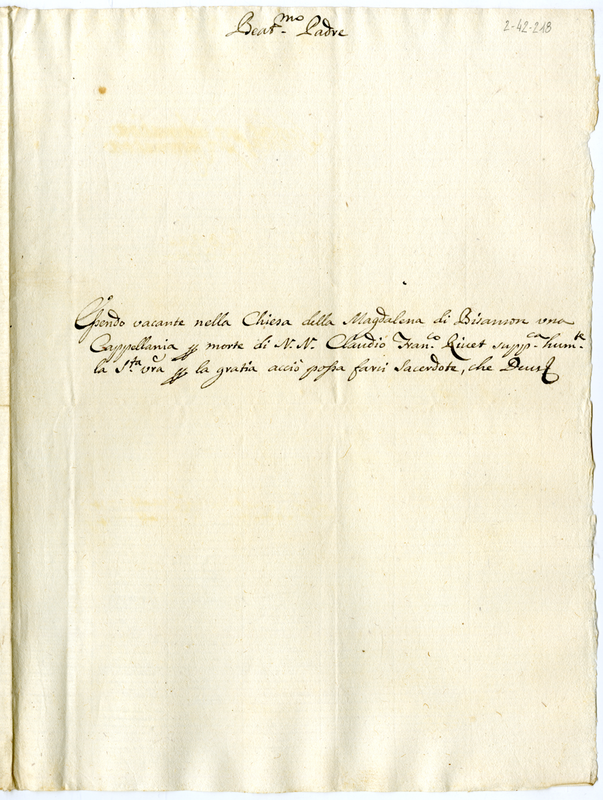 Beat.mo Padre
2-42-218
Essendo vacante nella Chiesa della Magdalena di Bisanson una
Cappellania p morte di N. N. Claudio Fran.co Rivet supp.ca hum.te
la S.ta vra p la gratia acciò possa farsi Sacerdote, che Deus